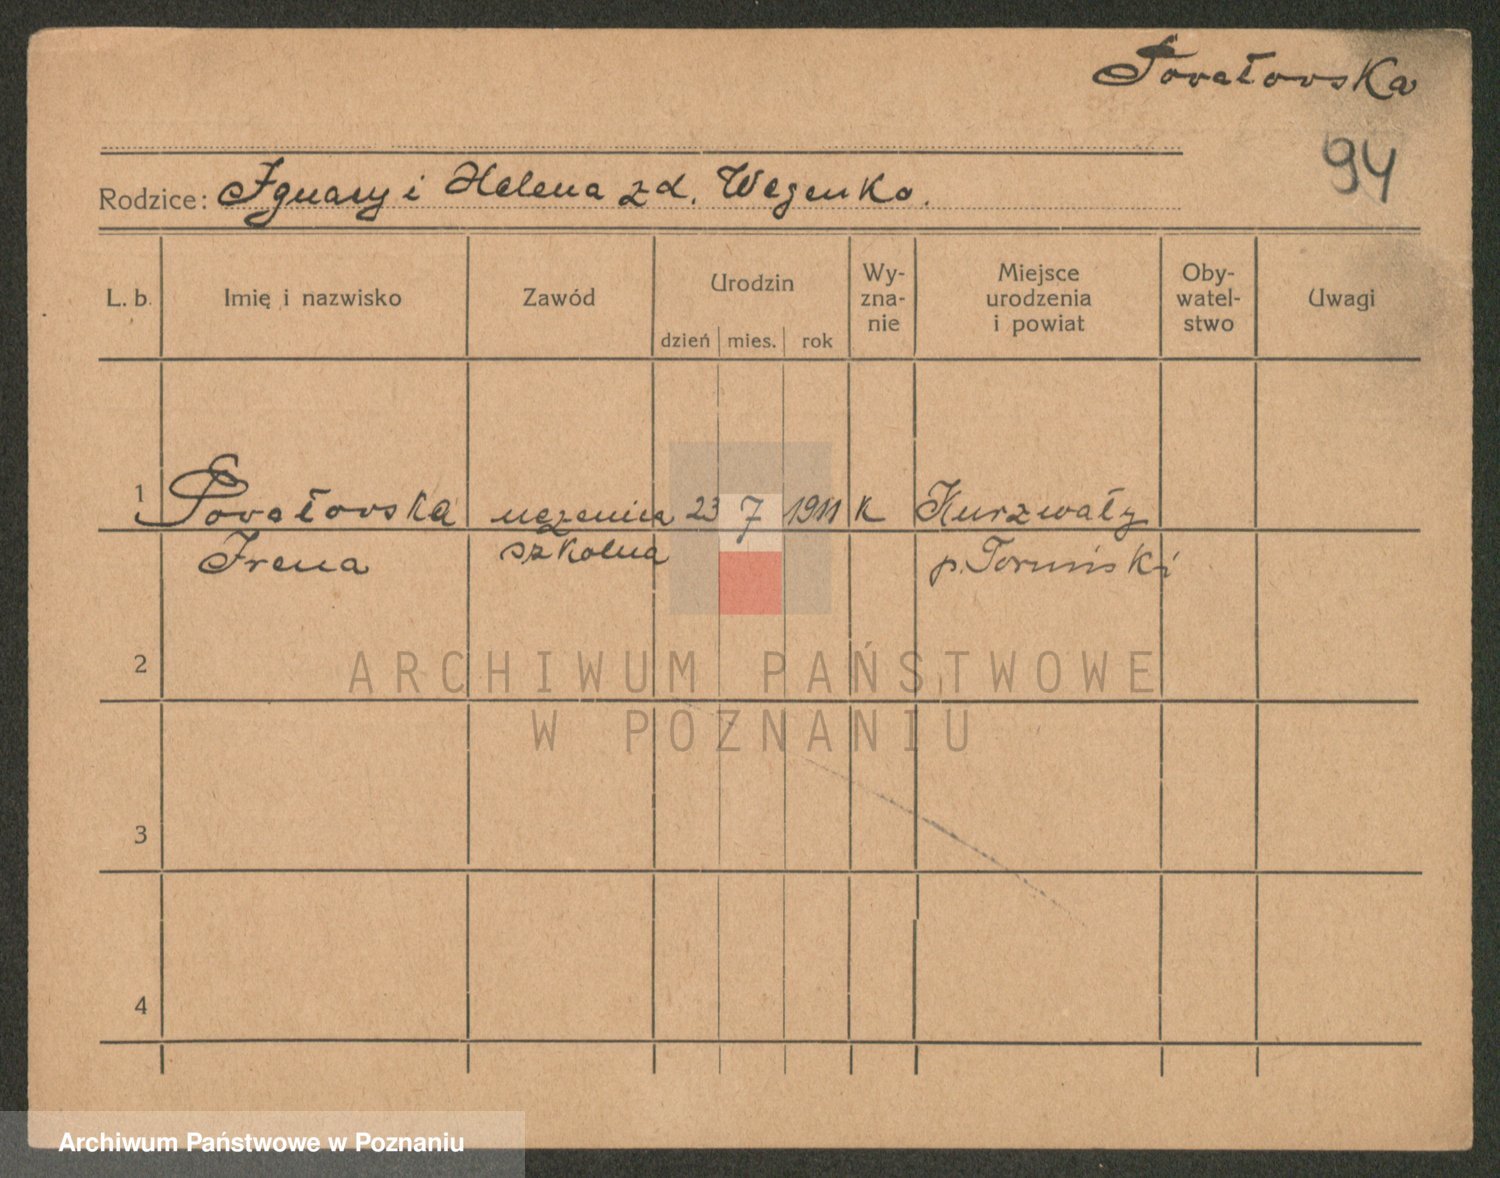 Powałowska
94
Rodzice: Ignacy i Helena zd. Wegenko.
L. b. Imię i nazwisko Zawód Urodzin dzień mies. rok Wy-zna-nie Miejsce urodzenia i powiat Oby-watel-stwo Uwagi
1 Powałowska uczenica 23 7 1911 K Kurzwały
Irena szkolna p. Toruński
2
ARCHIWUM PAŃSTWOWE
W POZNANIU
3
4
Archiwum Państwowe w Poznaniu